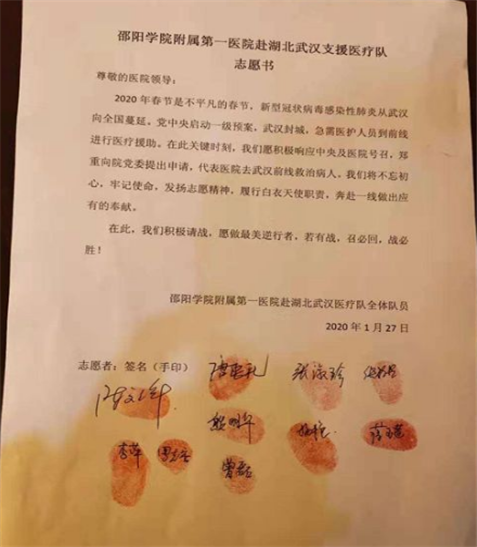 邵阳学院附属第一医院赴湖北武汉支援医疗队
志愿书
尊敬的医院领导：
2020年春节是不平凡的春节，新型冠状病毒感染性肺炎从武汉
向全国蔓延。党中央启动一级预案，武汉封城，急需医护人员到前线
进行医疗援助。在此关键时刻，我们愿积极响应中央及医院号召，郑
重向院党委提出申请，代表医院去武汉前线救治病人。我们将不忘初
心，牢记使命，发扬志愿精神，履行白衣天使职责，奔赴一线做出应
有的奉献。
在此，我们积极请战，愿做最美逆行者，若有战，召必回，战必
胜！
邵阳学院附属第一医院赴湖北武汉医疗队全体队员
2020年1月27日
志愿者：签名（手印）
张淑珍
李萍
曾磊